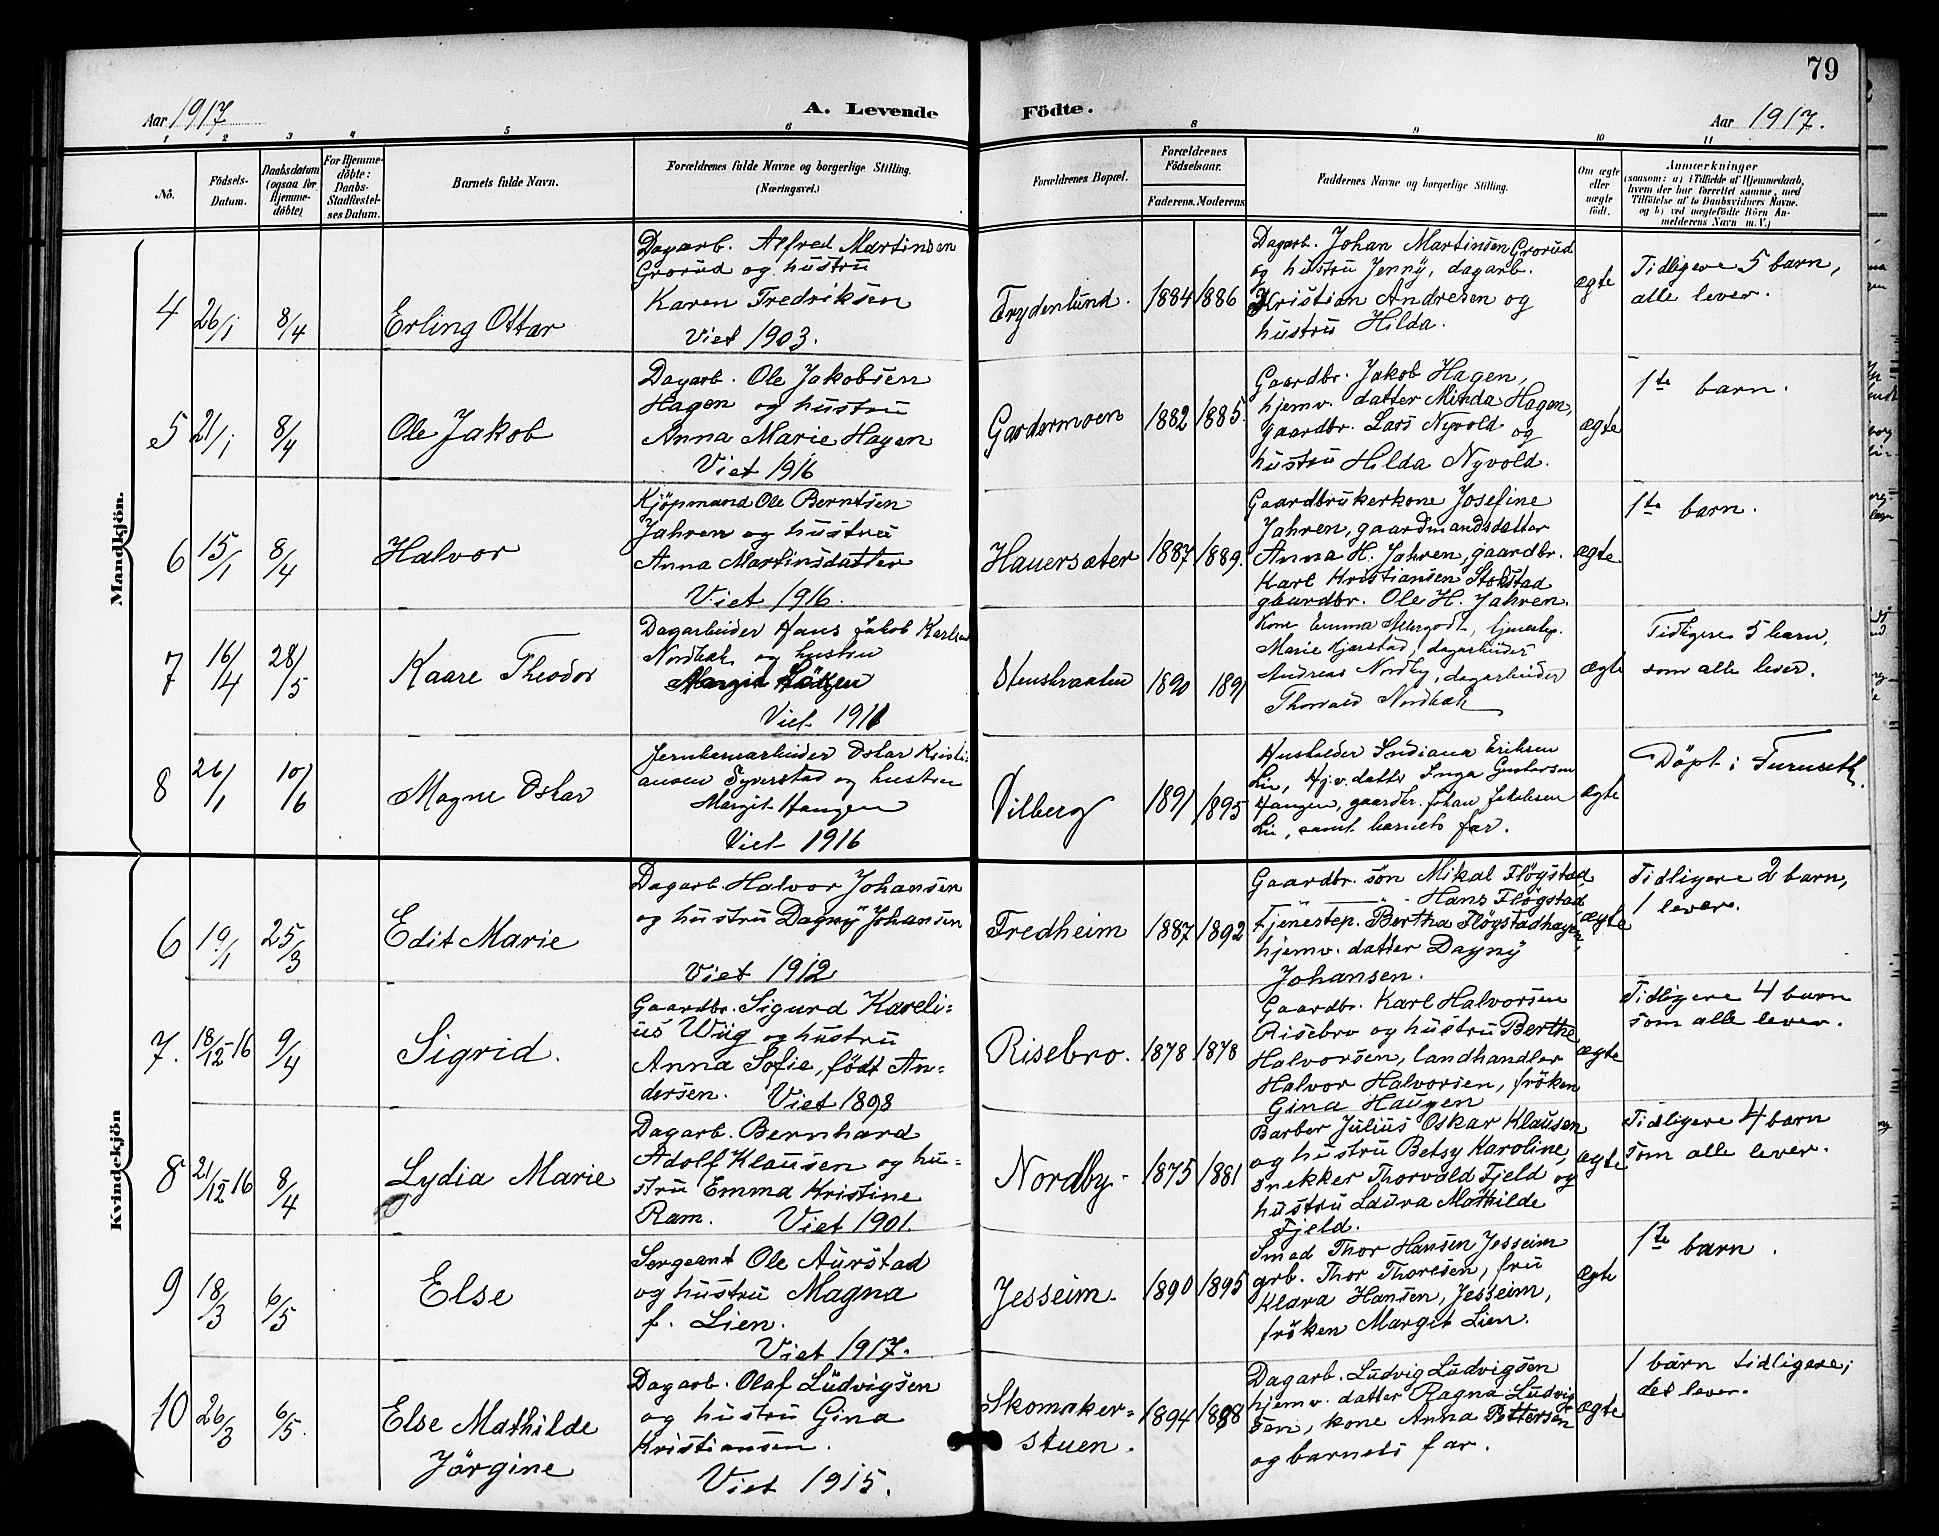 79
Aar 1917
A. Levende
Födte.
Aar 1917.
1 2 3 4 5 6 8 9 10 11
No.
Födsels-
Datum.
Daabsdatum
(ogsaa for
Hjemme-
døbte)
For Hjemme-
döbte:
Daabs-
Stadfæstel-
ses Datum.
Barnets fulde Navn.
Forældrenes fulde Navne og borgerlige Stilling.
(Næringsvei.)
Forældrenes Bopæl.
Forældrenes
Födselsaar.
Faderens. Moderens
Faddernes Navne og borgerlige Stilling.
Om ægte
eller
uægte
födt.
Anmærkninger
(saasom: a) i Tilfælde af Hjemmedaab,
hvem der har forrettet samme, med
Tilföielse af to Daabsvidners Navne.
og b) ved uægtefödte Börn An-
melderens Navn m. V.)
Mandkjön.
4
26/1
8/4
Erling Ottar
Dagarb. Alfred Martinsen
Grorud og hustru
Karen Fredriksen
Viet 1903.
Frydenlund.
1884
1886
Dagarb. Johan Martinsen Grorud
og hustru Jenny, dagarb.
Kristian Andresen og
hustru Hilda.
ægte
Tidligere 5 barn,
alle lever.
5
21/1
8/4
Ole Jakob
Dagarb. Ole Jakobsen
Hagen og hustru
Anna Marie Hagen
Viet 1916
Gardermoen
1882
1885.
Gaardbr. Jakob Hagen,
hjemv. datter Minda Hagen,
gaardbr. Lars Nyvold
og
hustru Hilda Nyvold.
ægte
1ste barn.
6
15/1
8/4
Halvor
Kjöpmand Ole Berntsen
Jahren og hustru
Anna Martinsdatter
Viet 1916.
Hauersæter
1887
1889.
Gaardbrukerkone Josefine
Jahren, gaardmandsdatter
Anna H. Jahren, gaardbr.
Karl Kristiansen Stokstad
gaardbr. Ole H. Jahren.
ægte
1ste barn.
7
16/4
28/5
Kaare Theodor
Dagarbeider Hans Jakob Karlsen
Nordbak og hustru
Margit
Viet 1911
Stenskraaten
1890
1891
Kone Emma, tjenestep.
Marie Gjerstad, dagarbeider
Andreas Nordby, dagarbeider
Thorvald Nordbak
ægte
Tidligere 5 barn,
som alle lever.
8
26/1
10/6
Magne Oskar
Jernbanearbeider Oskar Kristi-
ansen Syverstad og hustru
Margit Haugen
Viet 1916
Vilberg
1891
1895
Husholder Indiana Eriksen
Lie, Hjv. datter Inga Gustavsen
Haugen, gaardbr. Johan Jakobsen
Lie, samt barnets far.
ægte
Döpt i Furuseth.
Kvindekjön
6
19/1
25/3
Edit Marie
Dagarb. Halvor Johansen
og hustru Dagny Johansen
Viet 1912
Fredheim
1887
1892
Gaardbr. sön Mikal Flögstad,
" — " - Hans Flögstad
Tjenestep. Bertha Flögstadhagen,
hjemv. datter Dagny
Johansen.
ægte
Tidligere 2 barn,
1 lever.
7.
18/12-16
9/4
Sigrid.
Gaardbr. Sigurd Kareli-
us Wiig og hustru
Anna Sofie, födt An-
dersen. Viet 1898
Risebro.
1878
1878
Gaardbr. Karl Halvorsen
Risebro og hustru Berthe
Halvorsen, landhandler
Halvor Halvorsen, fröken
Gina Haugen
ægte
Tidligere 4 barn
som alle lever.
8
21/12 16
8/4
Lydia Marie
Dagarb. Bernhard
Adolf Klausen og hu-
stru Emma Kristine
Ram. Viet 1901.
Nordby-
1875
1881
Barber Julius Oskar Klausen
og hustru Betsy Karoline,
snekker Thorvald Fjeld og
hustru Laura Mathilde
Fjeld.
ægte
Tidligere 4 barn
som alle lever.
9
18/3
6/5
Else
Sergeant Ole Aurstad
og hustru Magna
f. Lien.
Viet 1917.
Jesseim.
1890
1895
Smed Thor Hansen Jesseim
arb. Thor Thoresen, fru
Klara Hansen, Jesseim,
fröken Margit Lien.
ægte
1ste barn.
10
26/3
6/5.
Else Mathilde
Jörgine
Dagarb. Olaf Ludvigsen
og hustru Gina
Kristiansen.
Viet 1915.
Skomaker-
stuen.
1894
1898
Dagarb. Ludvig Ludvigsen
hjemv. datter Ragna Ludvig-
sen, kone Anna Pettersen
og barnets far.
ægte
1 barn tidligere;
det lever.